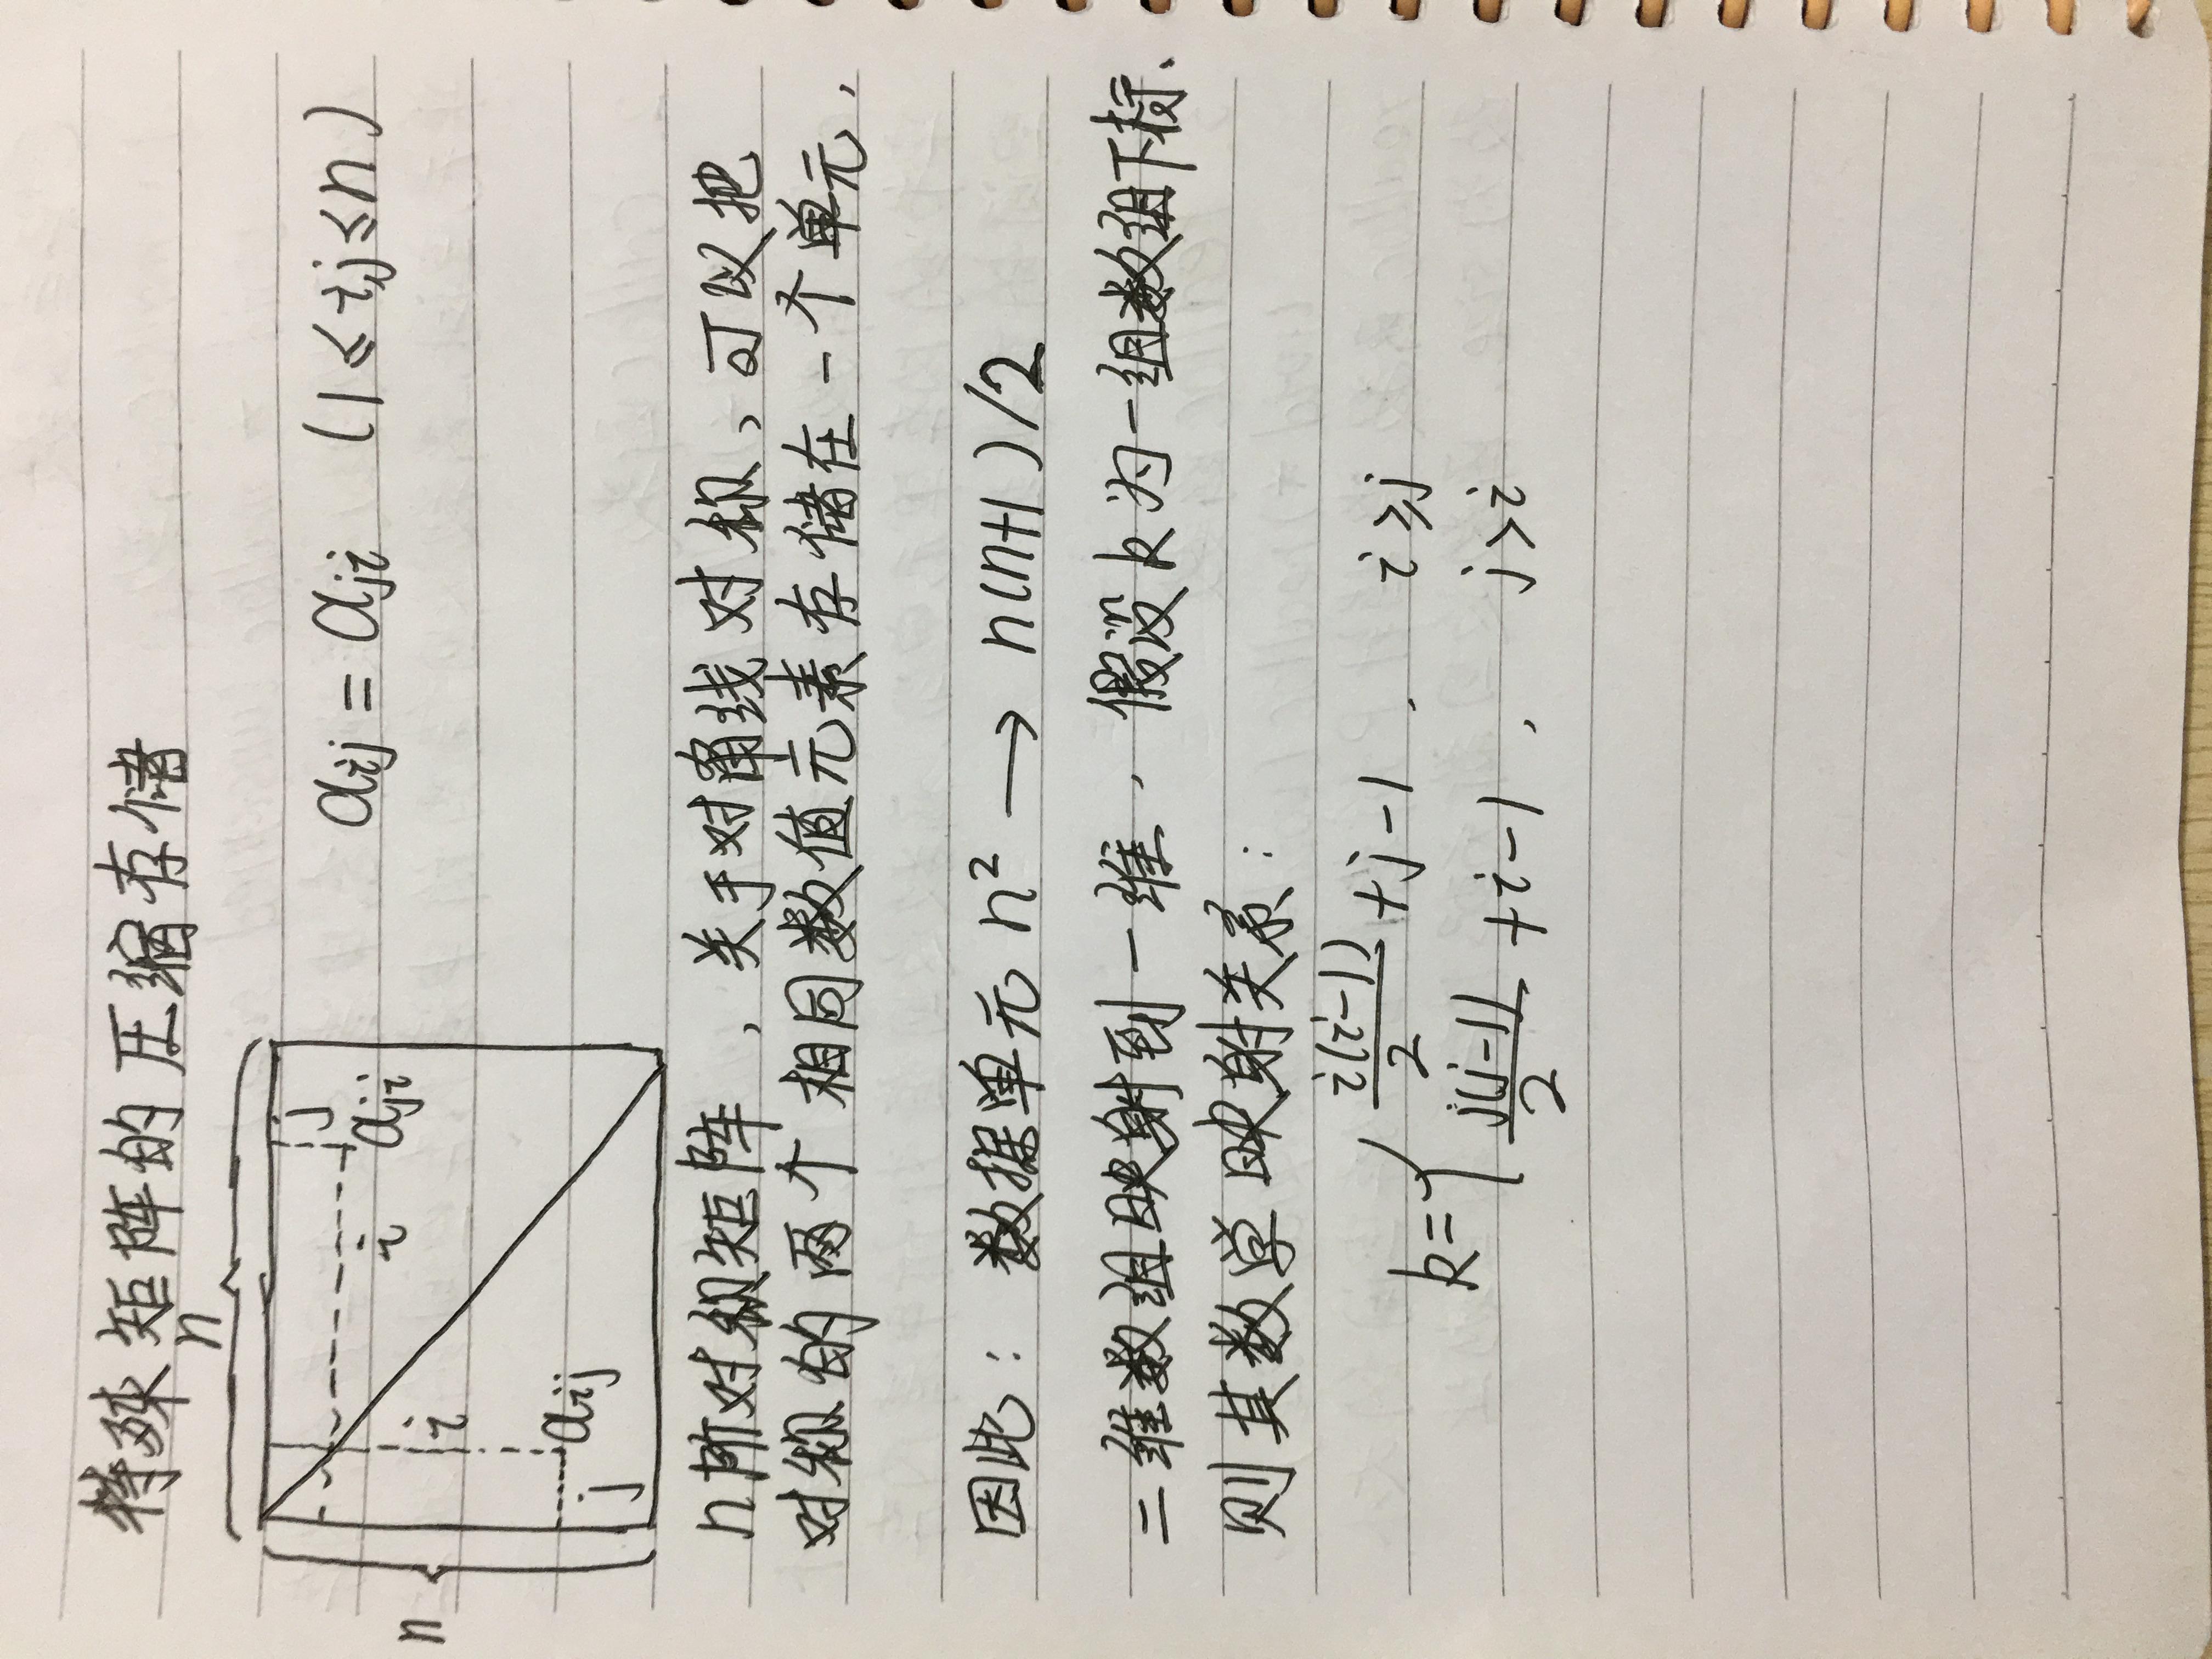 特殊矩阵的压缩存储
n
n
j
i
aji
i
aij
j
aij = aji (1≤i,j≤n)
n阶对称矩阵，关于对角线对称，可以把
对称的两个相同数值元素存储在一个单元，
因此： 数据单元 n² → n(n+1)/2
二维数组映射到一维，假设k为一组数组下标、
则其数学映射关系：
k={ i(i-1)/2 +j-1 , i≥j
j(j-1)/2 +i-1 , j>i